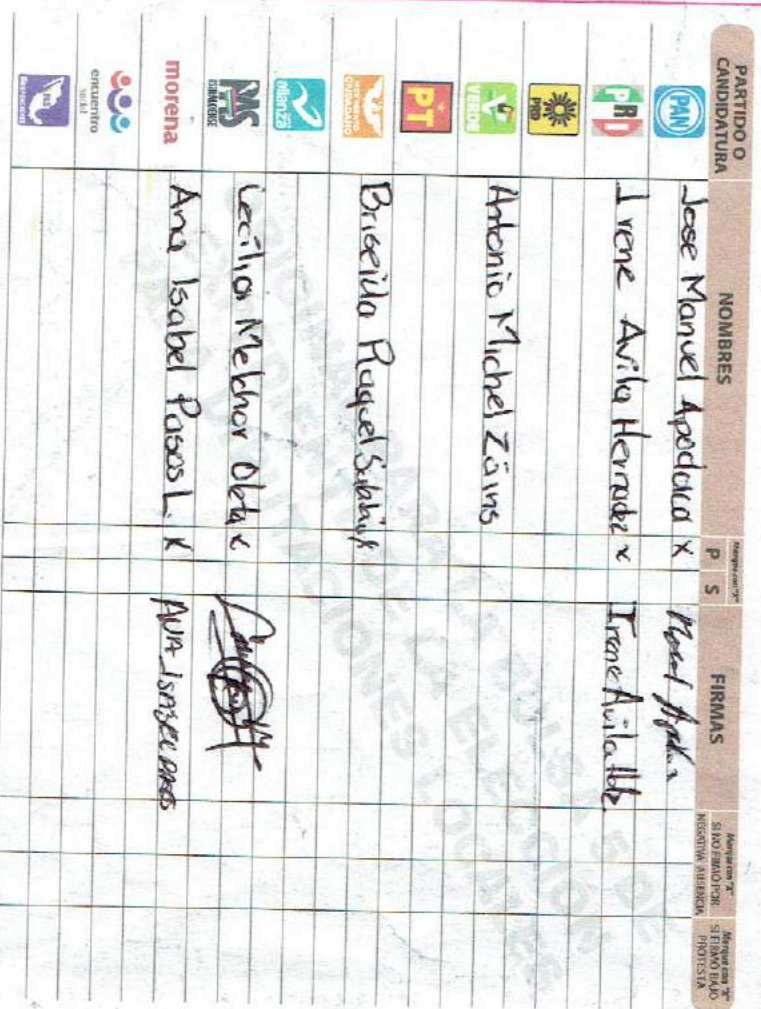 PARTIDO O CANDIDATURA NOMBRES Marque con "X" P S FIRMAS Marque con "X" SI NO FIRMÓ POR NEGATIVA AUSENCIA Marque con "X" SI FIRMÓ BAJO PROTESTA
PAN Jose Manuel Apodaca X
PRI Irene Avila Hernadez x Irene Avila Hdz.
PRD
VERDE Antonio Michel Zains
PT
MOVIMIENTO CIUDADANO Briseida Raquel
nueva alianza
PAS SINALOENSE Cecilia Melchor Oleta x
morena Ana Isabel Pasos L. X ANA ISABEL PASOS
encuentro social
ORIGINAL PARA LA BOLSA DE
EXPEDIENTE DE LA ELECCIÓN
PARA DIPUTACIONES LOCALES